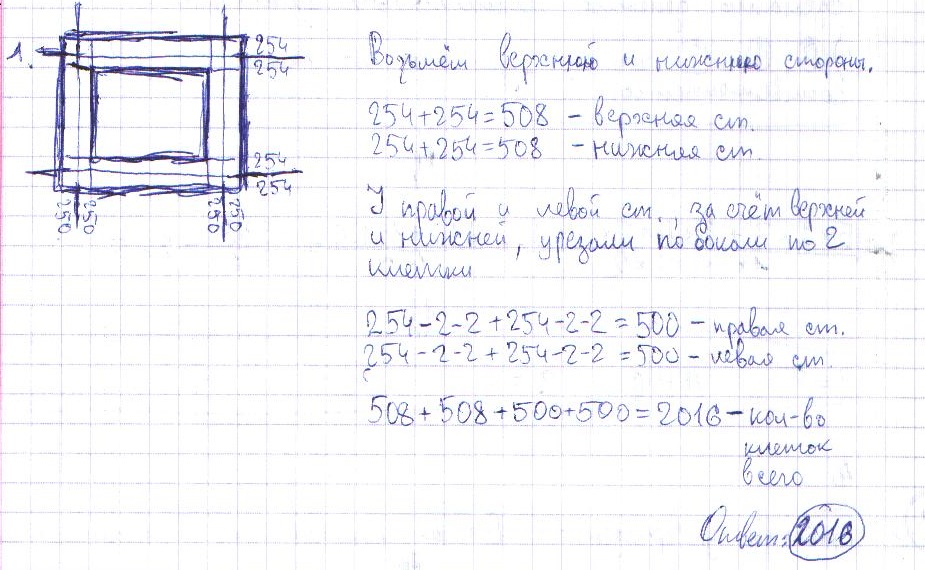 1.
254
254
254
254
250
250
250
250
Возьмём верхнюю и нижнюю стороны.
254+254=508 - верхняя ст.
254+254=508 - нижняя ст.
У правой и левой ст., за счёт верхней
и нижней, урезали по бокам по 2
клетки
254-2-2+254-2-2=500 - правая ст.
254-2-2+254-2-2=500 - левая ст.
508+508+500+500=2016 - кол-во
клеток
всего
Ответ: 2016